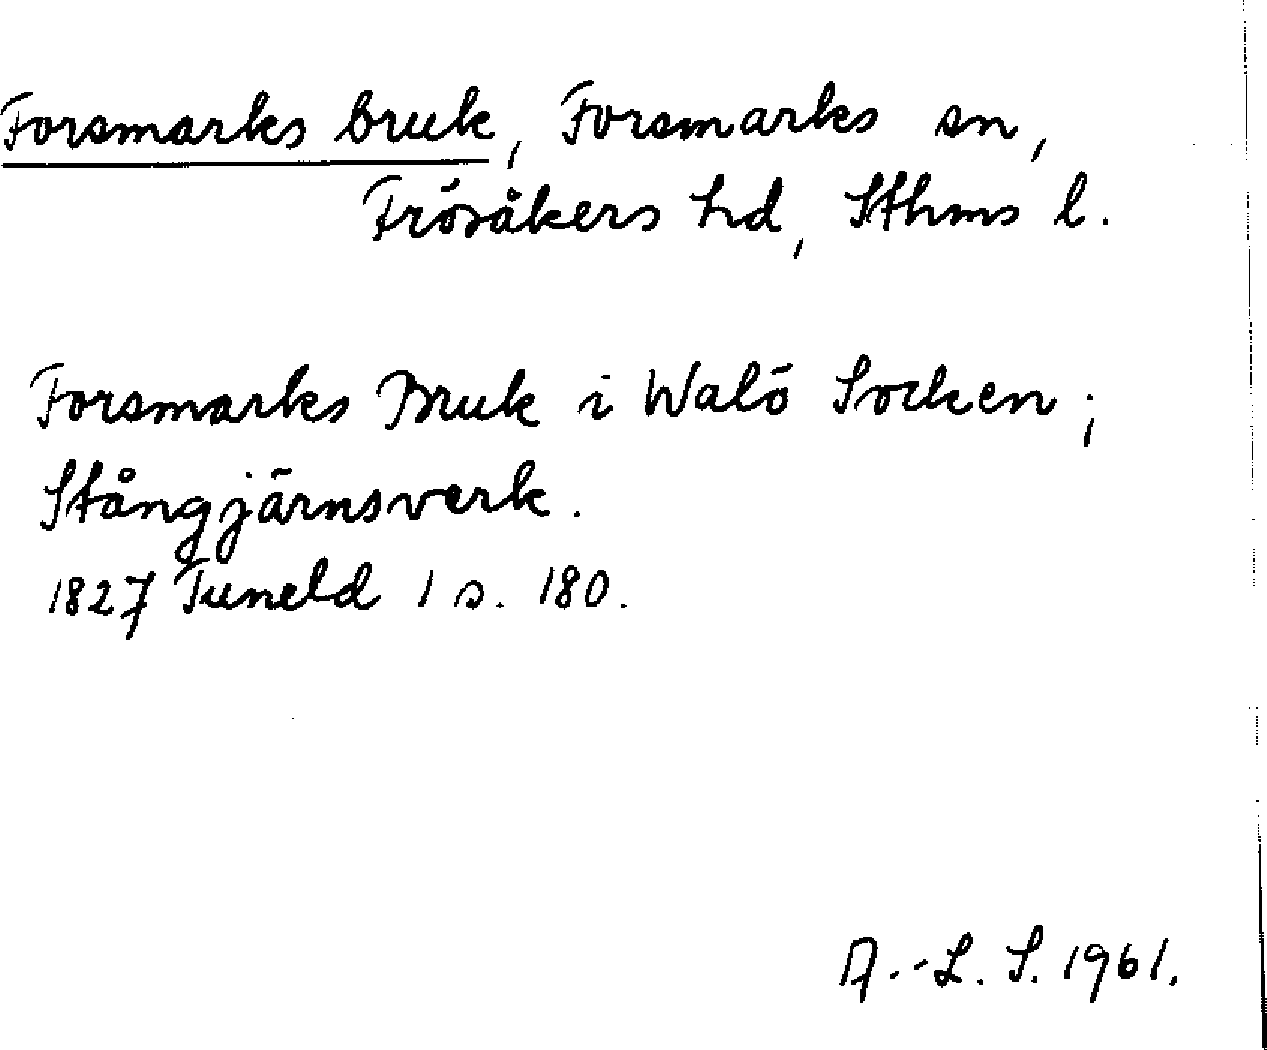 Forsmarks bruk, Forsmarks sn,
Frösåkers hd, Sthms l.
Forsmarks Bruk i Walö Socken;
Stångjärnsverk.
1827 Tuneld 1 s. 180.
A.-L. S. 1961.